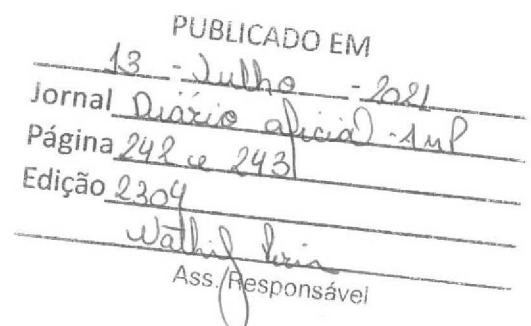 PUBLICADO EM
13 - Julho - 2021
Jornal Diário oficial -
Página 242 e 243
Edição 2304
Ass. Responsável